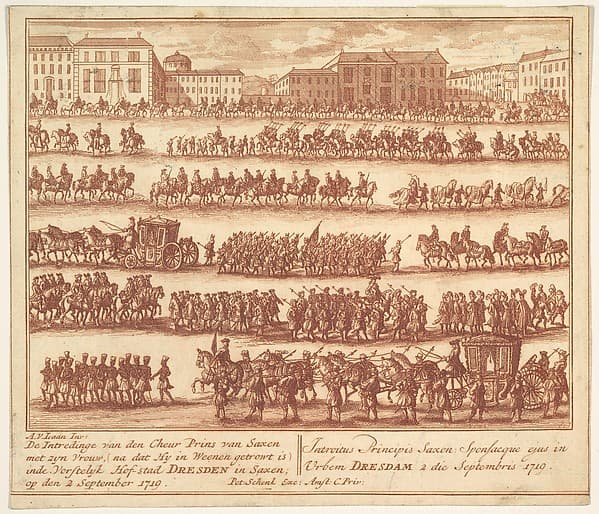 A.V.Laan Inv:
De Intredinge van den Cheur Prins van Saxen
met zyn Vrouw, (na dat Hy in Weenen getrowt is)
inde Vorstelyk Hof-stad DRESDEN in Saxen;
op den 2 September 1719.
Introitus Principis Saxon: Sponsacque ejus in
Urbem DRESDAM 2 die Septembris 1719.
Pet: Schenk Exc: Amst: C. Priv: